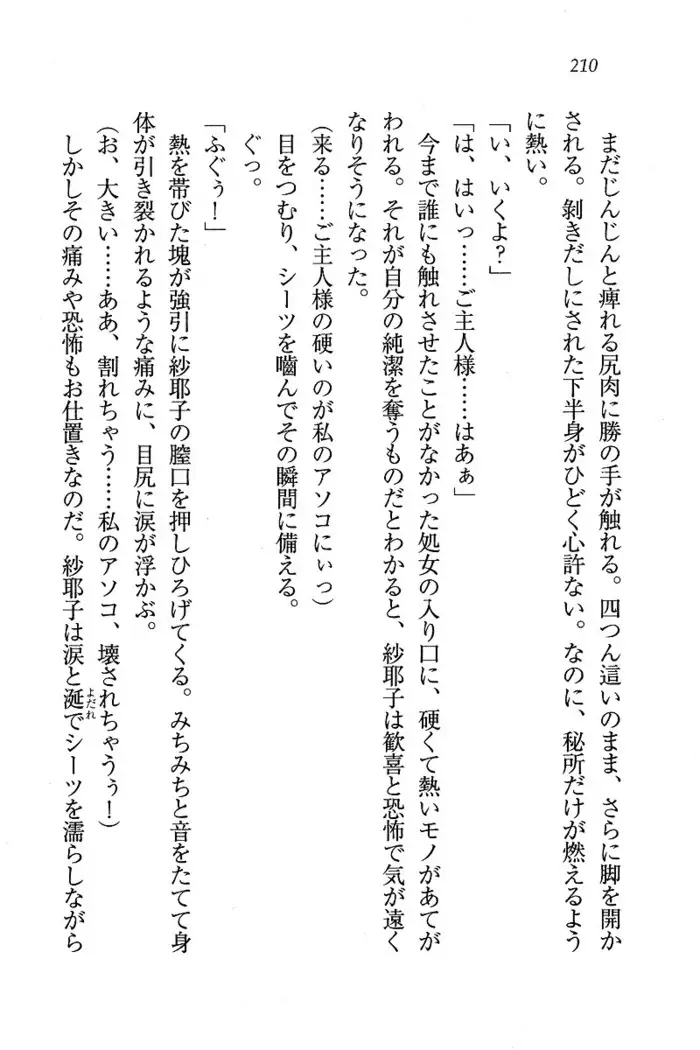 210
まだじんじんと痺れる尻肉に勝の手が触れる。四つん這いのまま、さらに脚を開か
される。剝きだしにされた下半身がひどく心許ない。なのに、秘所だけが燃えるよう
に熱い。
「い、いくよ？」
「は、はいっ……ご主人様……はあぁ」
今まで誰にも触れさせたことがなかった処女の入り口に、硬くて熱いモノがあてが
われる。それが自分の純潔を奪うものだとわかると、紗耶子は歓喜と恐怖で気が遠く
なりそうになった。
（来る……ご主人様の硬いのが私のアソコにぃっ）
目をつむり、シーツを嚙んでその瞬間に備える。
ぐっ。
「ふぐぅ！」
熱を帯びた塊が強引に紗耶子の膣口を押しひろげてくる。みちみちと音をたてて身
体が引き裂かれるような痛みに、目尻に涙が浮かぶ。
（お、大きい……ああ、割れちゃう……私のアソコ、壊されちゃうぅ！）
しかしその痛みや恐怖もお仕置きなのだ。紗耶子は涙と涎でシーツを濡らしながら
よだれ